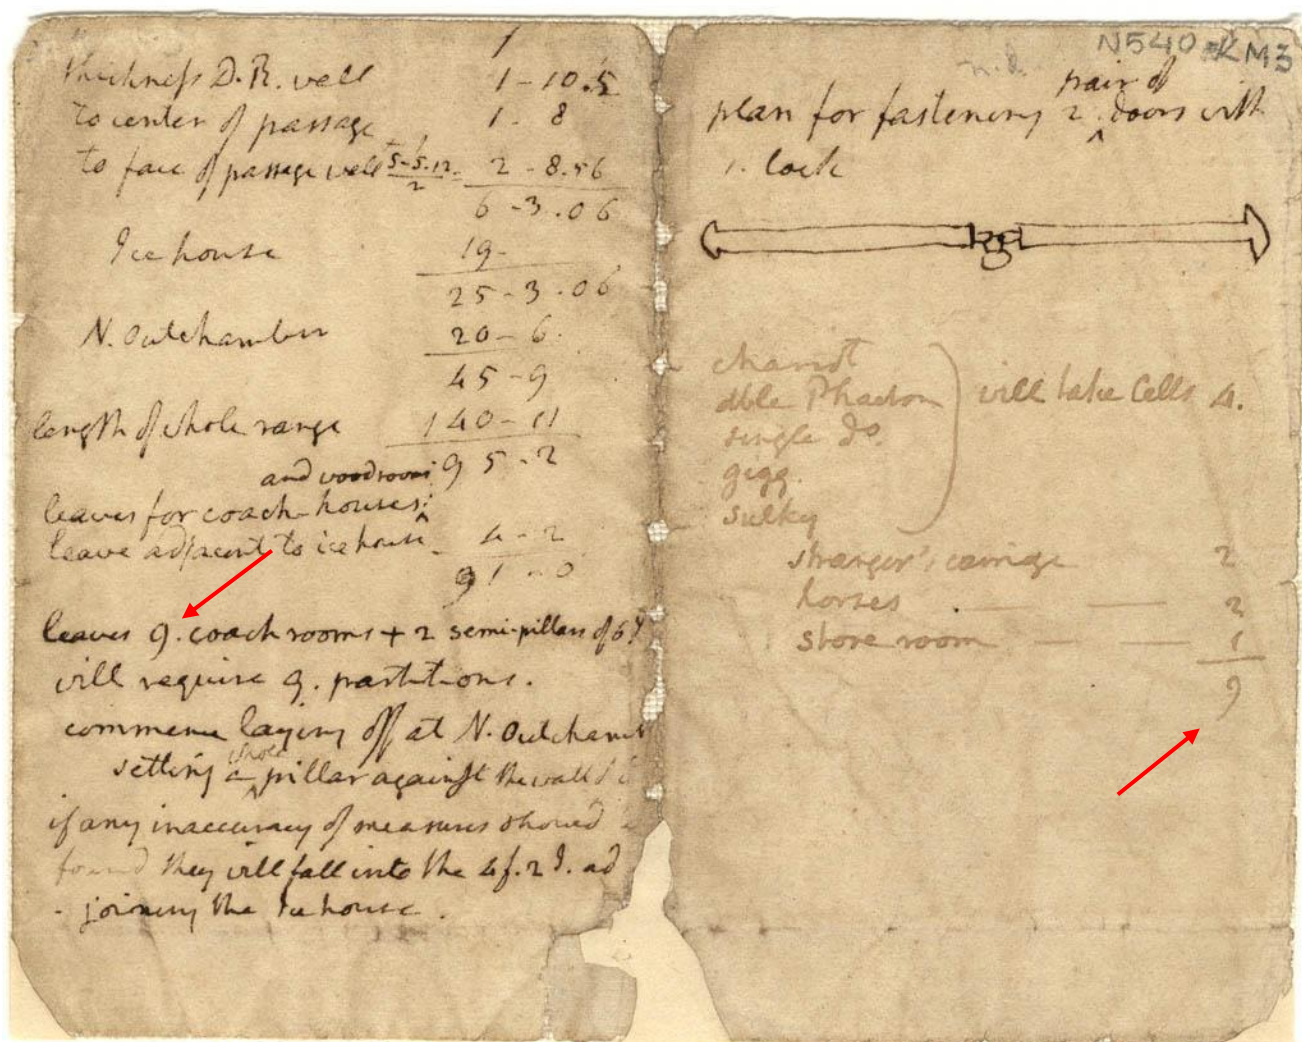 1
thickness D.R. wall 1-10.5
to center of passage 1. 8
to face of passage wall 5-5.12/2 = 2-8.56
6-3.06
Ice house 19-
25-3.06
N. Outchamber 20-6.
45-9
length of whole range 140-11
95-2
and woodroom
leaves for coach-houses:
leave adjacent to ice house - 4-2
91-0
leaves 9. coach rooms + 2 semi-pillars of 6 I.
will require 9. partitions.
commence laying off at N. Outchamb
whole
setting a ^ pillar against the wall
if any inaccuracy of measures should
found they will fall into the 4 f. 2 I. ad
- joining the Ice house.
N540 KM3
n.d.
pair of
plan for fastening 2. ^ doors with
1. lock
chariot
dble Phaeton } will take Cells 4.
single do.
gigg.
sulky
stranger's carriage 2
horses . — — 2
store room — — 1
9